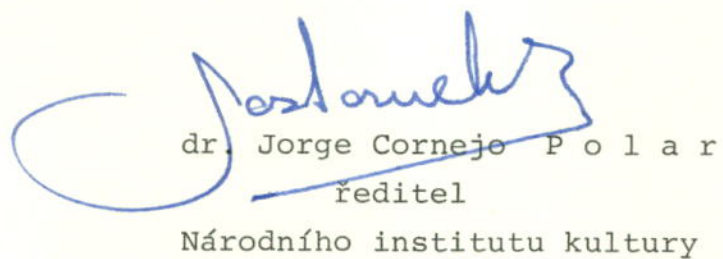 dr. Jorge Cornejo P o l a r
ředitel
Národního institutu kultury